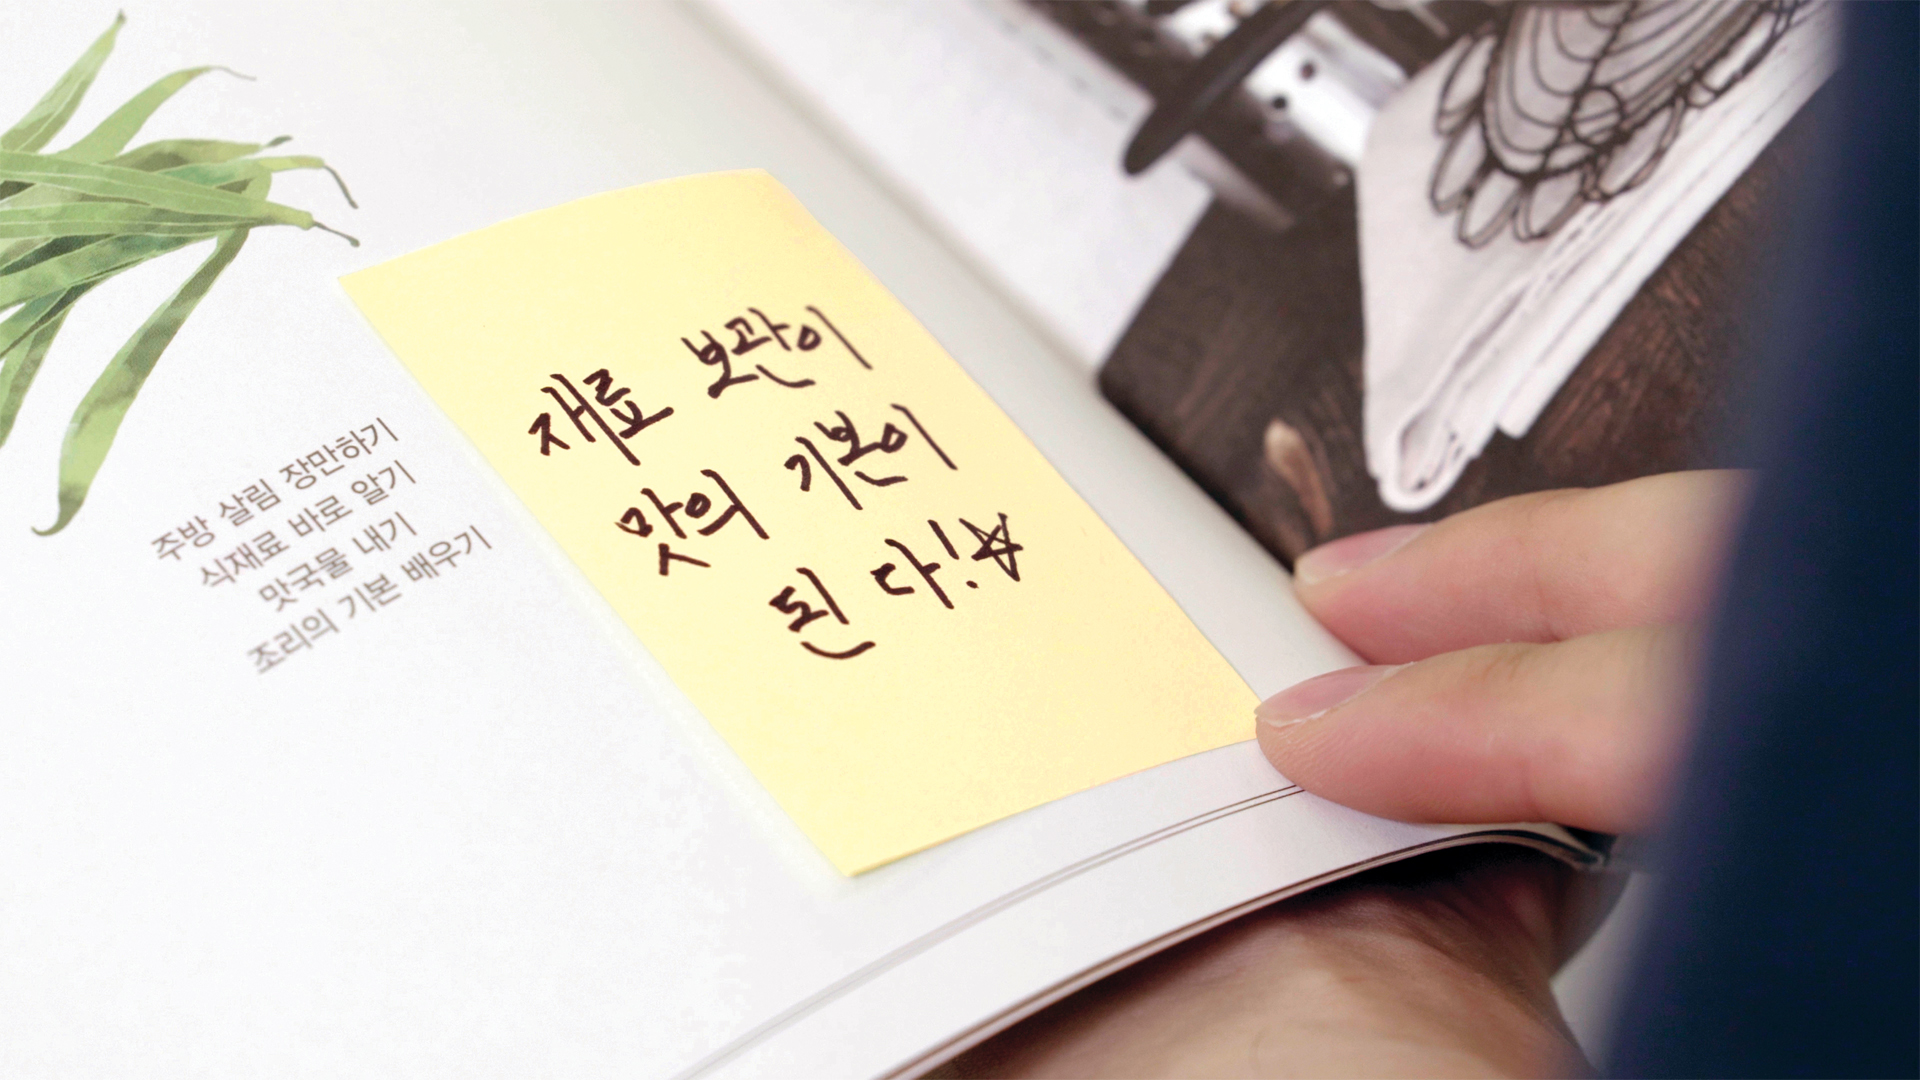 주방 살림 장만하기
식재료 바로 알기
맛국물 내기
조리의 기본 배우기
재료 보관이
맛의 기본이
된 다!☆